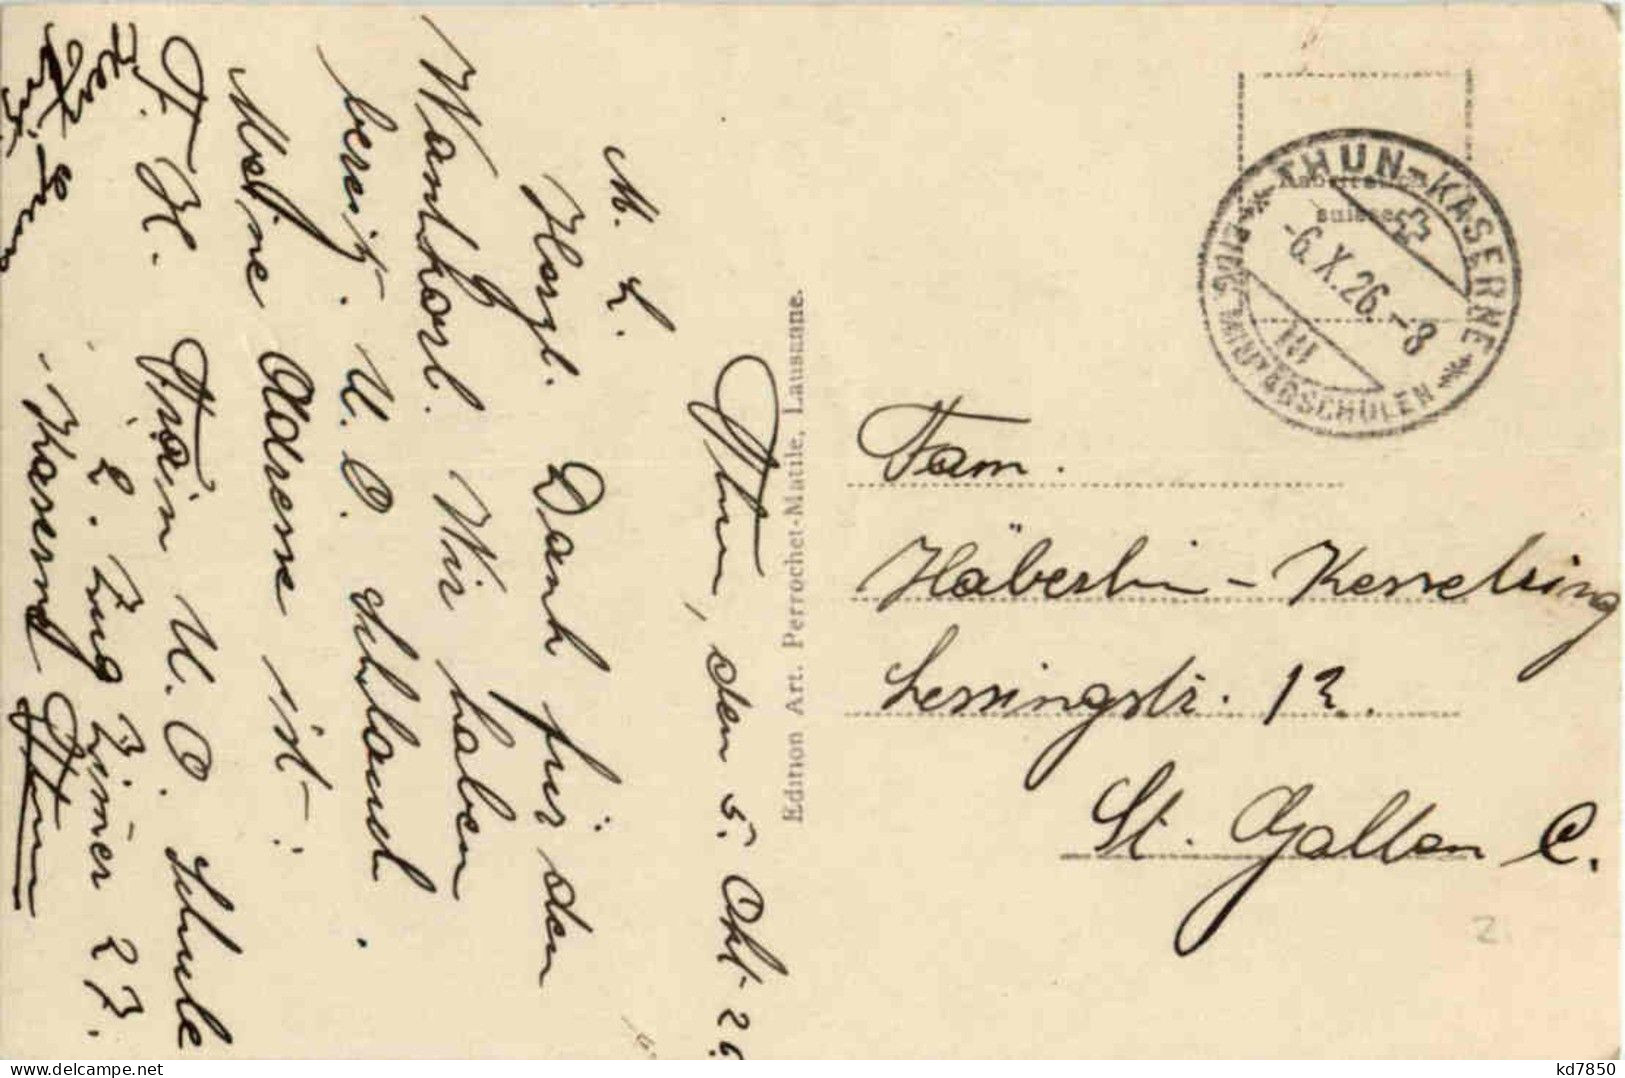 Thun, den 5. Okt. 26
M. L.
Herzl. Dank für den
Wankorl. Wir haben
bereits U. O.
Meine Adresse ist:
F. H. Train U. O. Schule
2. Zug Zimmer 27.
Kaserne Thun
Edition Art. Perrochet-Matile, Lausanne.
THUN-KASERNE
EIDG. MILITÄRSCHULEN
-6.X.26.-8
III
suisse
Fam.
Häberlin-Kesselring
Lessingstr. 12.
St. Gallen C.
Z
kd7850